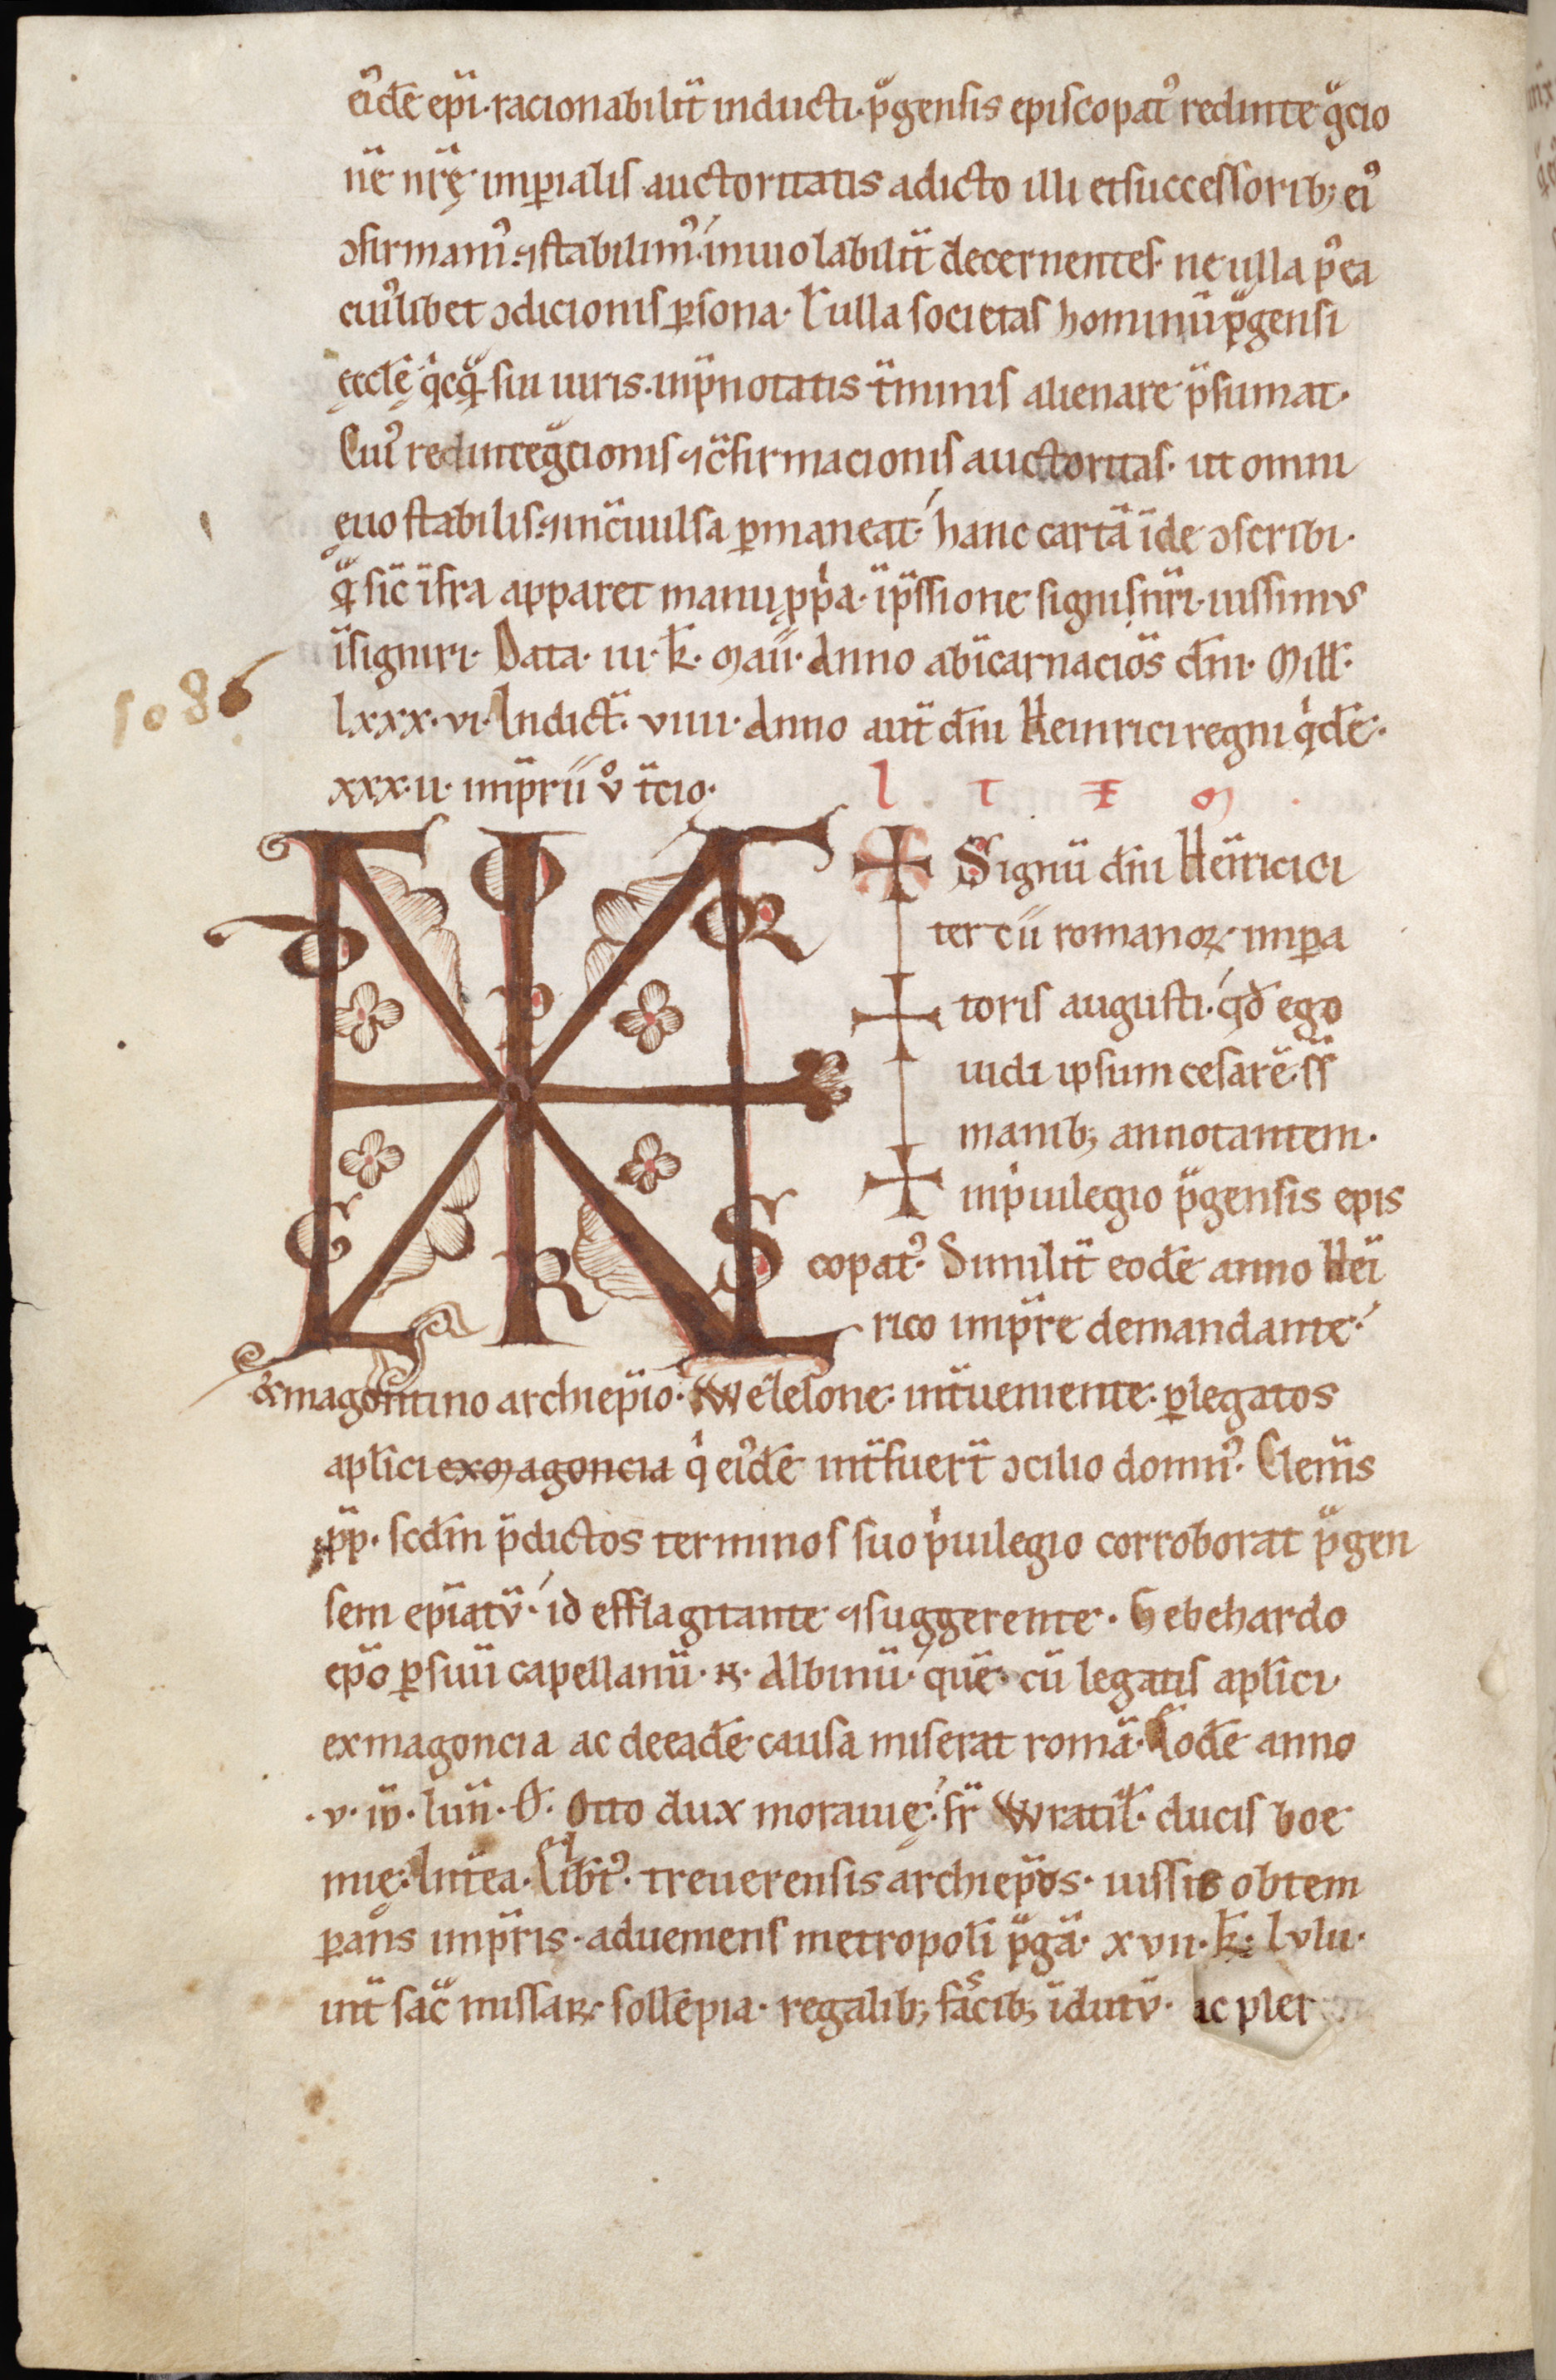 eiꝰdē epī· racionabilit̄ inducti· p̄gensis episcopatꝰ redinteg̃cio
nē nr̄ę imꝑialis auctoritatis adicto illi etsuccessorib; eiꝰ
ↄfirmamꝰ· ⁊stabilimꝰ· inuiolabilit̄ decernentes· ne ulla pꝰea
cuiꝰlibet ↄdicionis ꝑsona· ł ulla societas hominū p̄gensi
ęcclę̄ qͥcq̃ sui iuris· inp̄notatis t̄minis alienare p̄sumat·
Cuiꝰ redinteg̃cionis ⁊ c̄firmacionis auctoritas· ut omni
ęuo stabilis· ⁊inc̄uulsa ꝑmaneat· hanc cartā īdē ↄscribi·
q̃ sic̄ īfra apparet manu ꝓpͥa· īp̄ssione signi nr̄i· iussimus
īsigniri· Data· iii· k̄· maii· Anno abīcarnaciōs dn̄i· Mill̄·
lxxx· vi· Indict̄· viiii· Anno aut̄ dn̄i Heinrici regni qͥdē·
xxx· ii· imp̄rii v̊ t̄cio·
l . t ꞇ m .
1086
Signū dn̄i Heīricici
tercii romanoꝝ imꝑa
toris augusti· qđ ego
uidi ipsum cesarē· ss̄
manib; annotantem·
inpͥuilegio p̄gensis epis
copatꝰ· Similit̄ eodē anno Heī
rico imp̄re demandante·
&magontino archiepīo· Welelone· int̄ueniente· ꝑlegatos
apl̄ici exmagoncia qͥ eiꝰdē int̄fuert̄ ↄcilio domnꝰ· Clem̄s
pp̄· scdm̄ p̄dictos terminos suo pͥuilegio corroborat p̄gen
sem epīatū· id efflagitante ⁊suggerente· Gebehardo
epō ꝑsuū capellanū· n· Albinū· quē· cū legatis apl̄ici·
exmagoncia ac deeadē causa miserat romā· Eodē anno
· v· id̄· iun̄· O· Otto dux morauię· fr̄ Wratil̄· ducis boe
mię· Intēa· Eilbt̄ꝰ· treuerensis archiep̄os· iussis obtem
ꝑans imp̄ris· adueniens metropoli p̄gā· xvii· k̄· Iulii·
int̄ sac̄ missaꝝ sollēpia· regalib; fascib; īdutū· ac pler